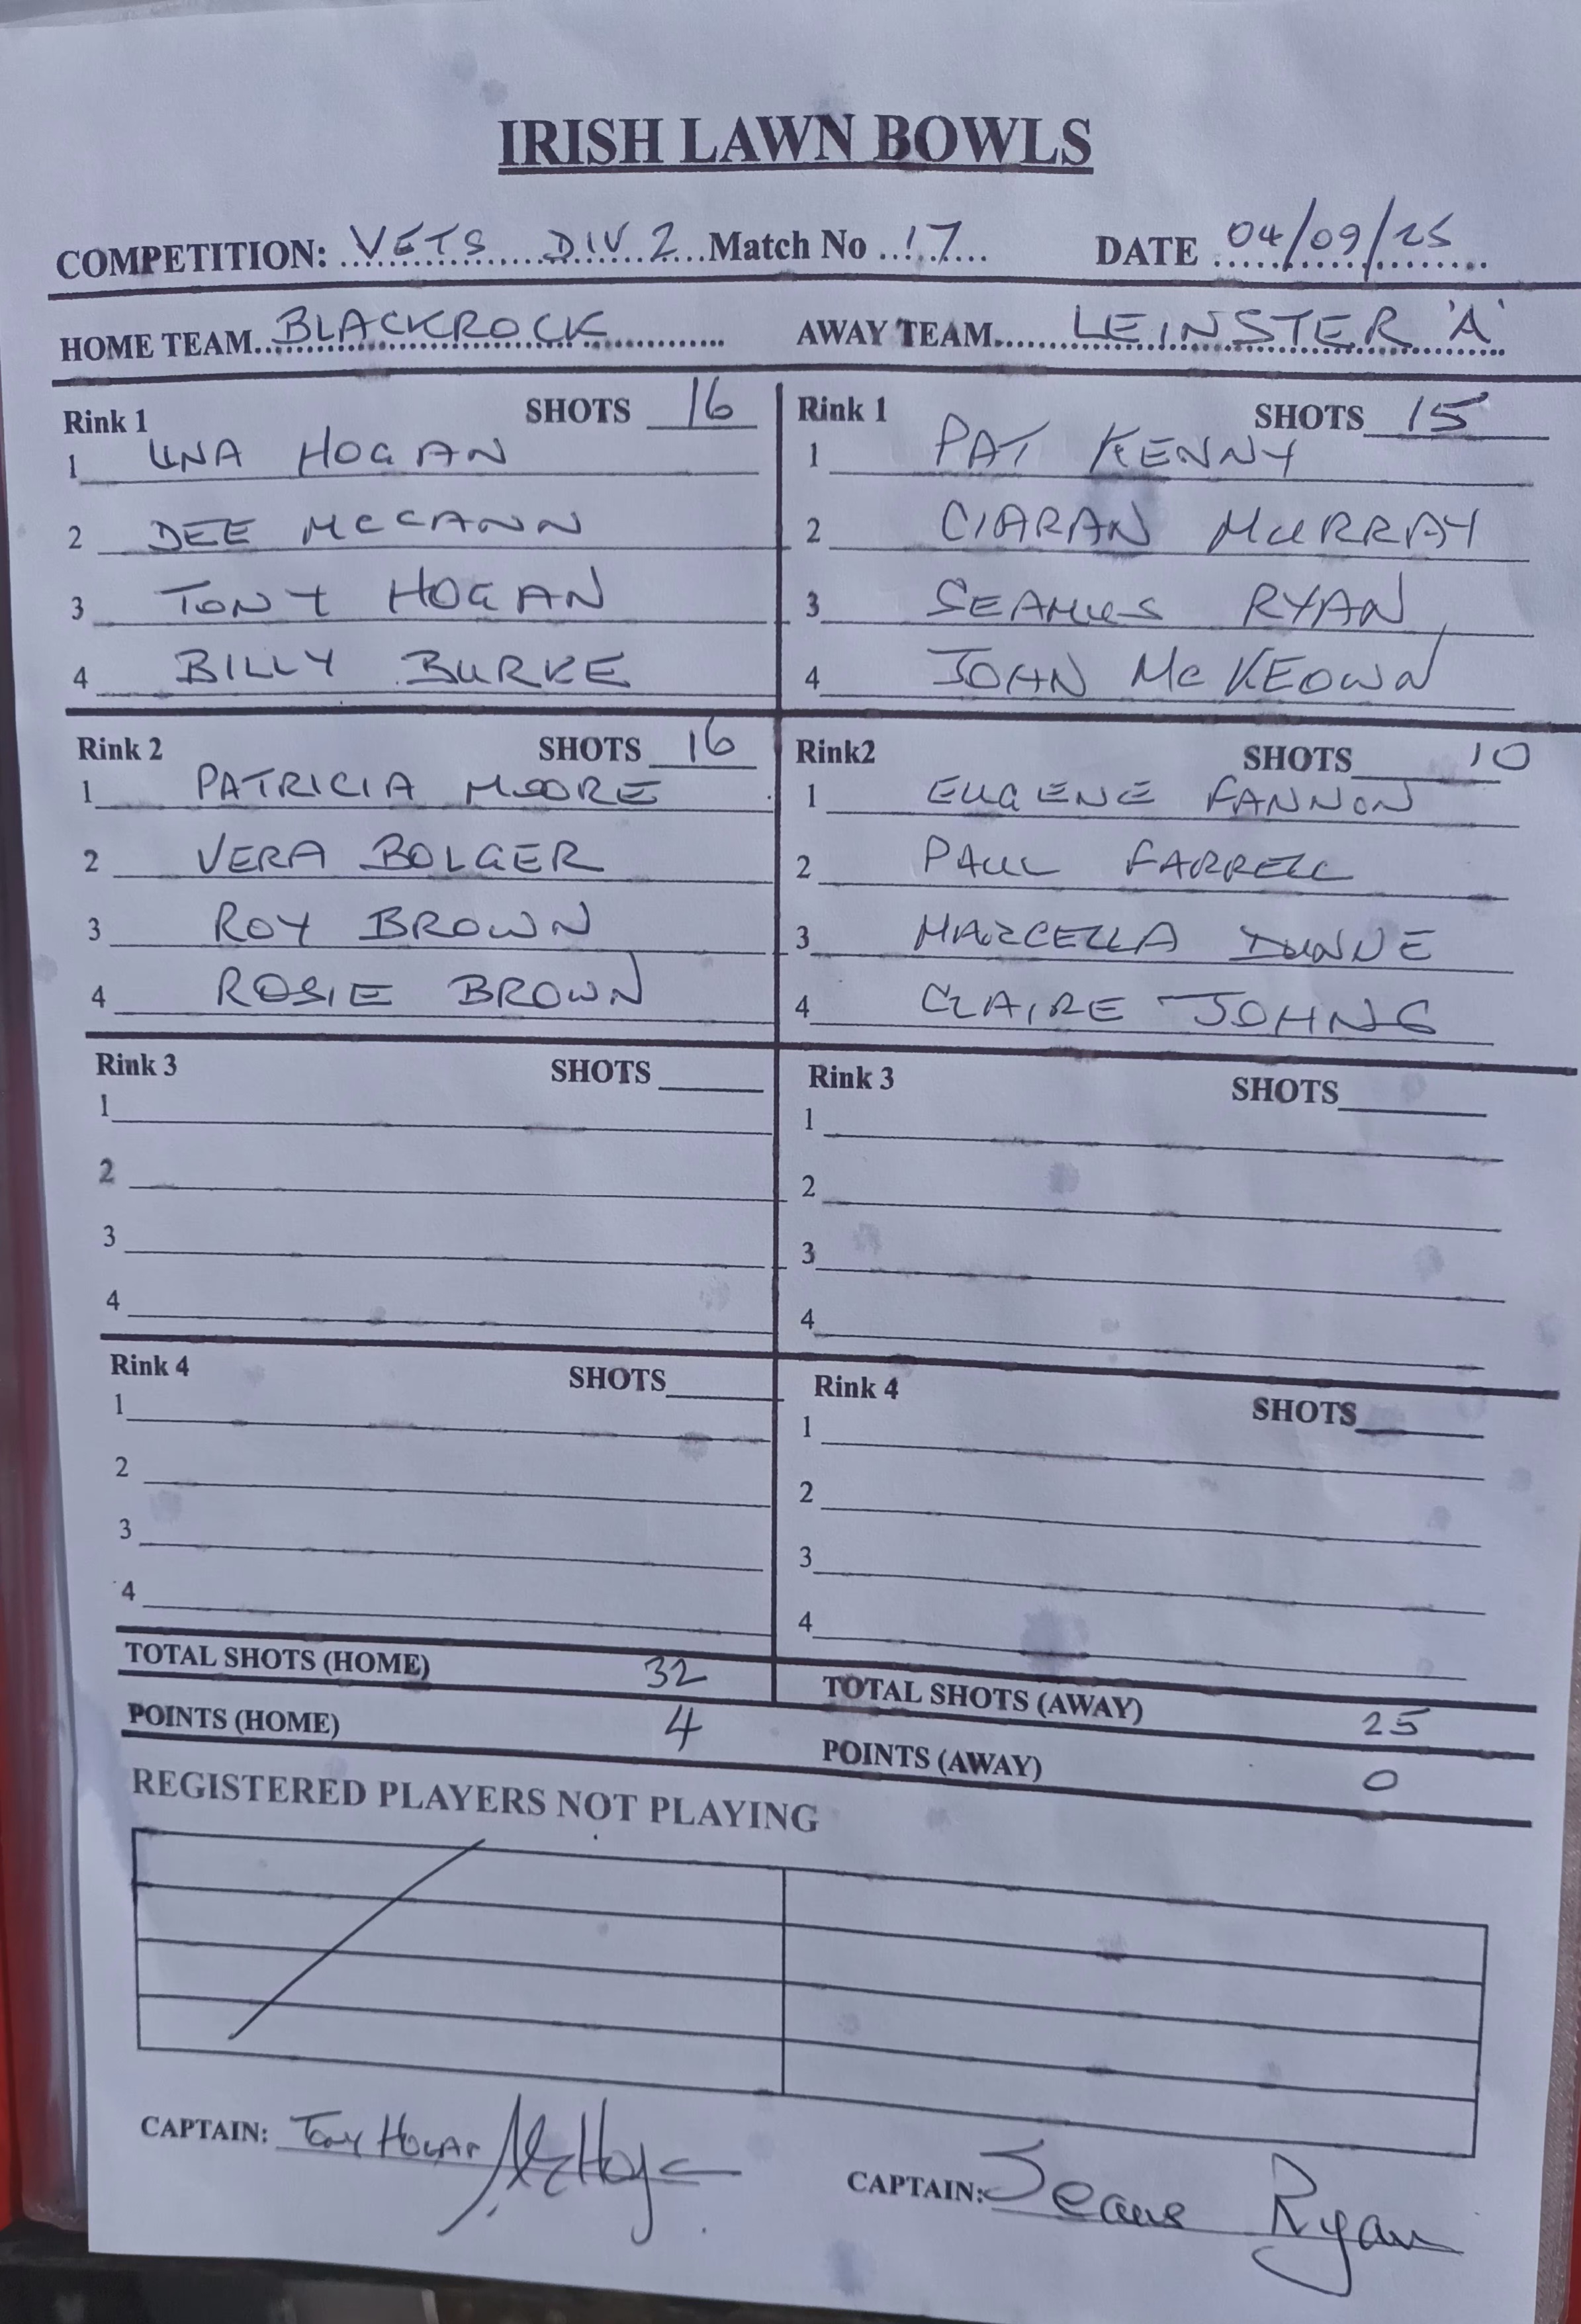 IRISH LAWN BOWLS
COMPETITION: VETS DIV 2 Match No 17 DATE 04/09/25
HOME TEAM BLACKROCK AWAY TEAM LEINSTER 'A'
Rink 1 SHOTS 16
1 UNA HOGAN
2 DEE McCANN
3 TONY HOGAN
4 BILLY BURKE
Rink 1 SHOTS 15
1 PAT KENNY
2 CIARAN MURRAY
3 SEAMUS RYAN
4 JOHN McKEOWN
Rink 2 SHOTS 16
1 PATRICIA MOORE
2 VERA BOLGER
3 ROY BROWN
4 ROSIE BROWN
Rink2 SHOTS 10
1 EUGENE FANNON
2 PAUL FARRELL
3 MARCELLA DUNNE
4 CLAIRE JOHNS
Rink 3 SHOTS
1
2
3
4
Rink 3 SHOTS
1
2
3
4
Rink 4 SHOTS
1
2
3
4
Rink 4 SHOTS
1
2
3
4
TOTAL SHOTS (HOME) 32 TOTAL SHOTS (AWAY) 25
POINTS (HOME) 4 POINTS (AWAY) 0
REGISTERED PLAYERS NOT PLAYING
CAPTAIN: TONY HOGAN
CAPTAIN: Ryan